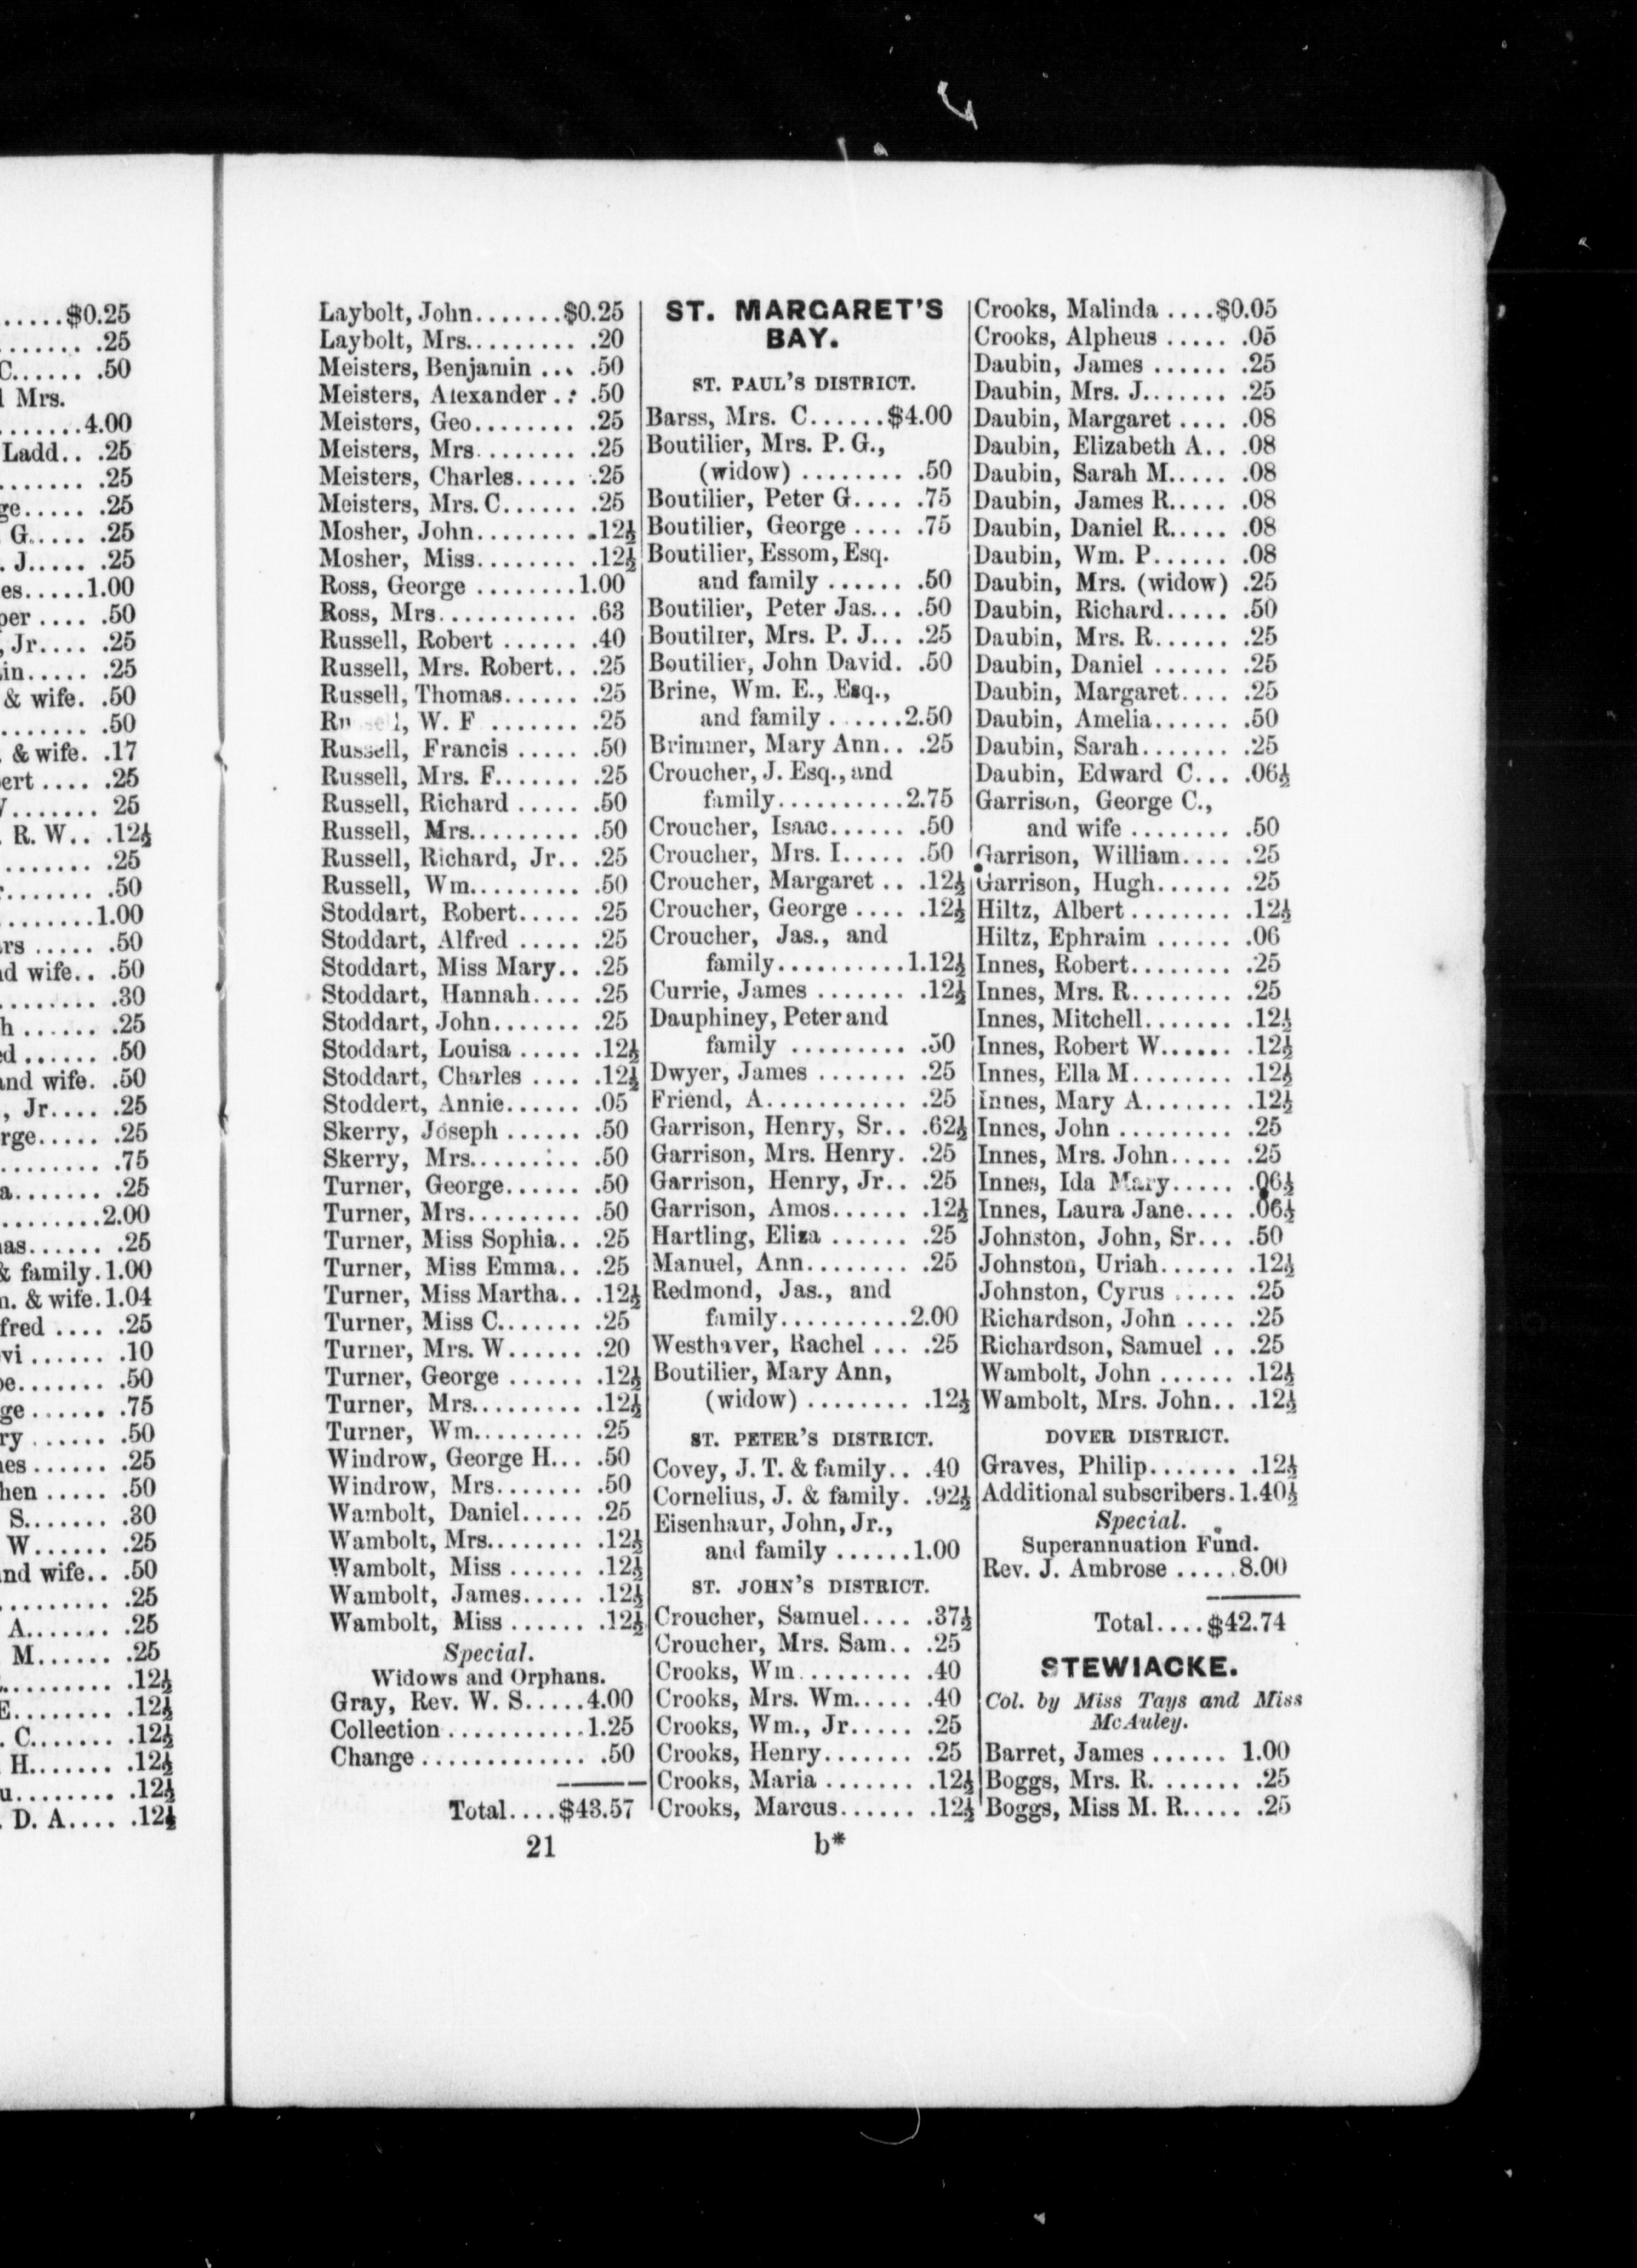 .....$0.25
....... .25
C...... .50
Mrs.
.......4.00
Ladd.. .25
....... .25
ge..... .25
G..... .25
. J..... .25
es.....1.00
per .... .50
, Jr.... .25
in..... .25
& wife. .50
....... .50
. & wife. .17
ert .... .25
....... 25
. R. W.. .12½
....... .25
....... .50
........1.00
rs ..... .50
d wife.. .50
........ .30
h ...... .25
ed ...... .50
and wife. .50
, Jr.... .25
rge..... .25
........ .75
a....... .25
........2.00
as...... .25
& family.1.00
n. & wife.1.04
fred .... .25
vi ...... .10
e....... .50
ge ...... .75
ry ...... .50
es ...... .25
hen ..... .50
S....... .30
W...... .25
nd wife.. .50
......... .25
A....... .25
M...... .25
......... .12½
E........ .12½
. C....... .12½
H....... .12½
u........ .12½
. D. A.... .12½
Laybolt, John.......$0.25
Laybolt, Mrs......... .20
Meisters, Benjamin ... .50
Meisters, Alexander .. .50
Meisters, Geo........ .25
Meisters, Mrs........ .25
Meisters, Charles..... .25
Meisters, Mrs. C...... .25
Mosher, John........ .12½
Mosher, Miss........ .12½
Ross, George ........1.00
Ross, Mrs........... .63
Russell, Robert ...... .40
Russell, Mrs. Robert.. .25
Russell, Thomas...... .25
Russell, W. F ....... .25
Russell, Francis ..... .50
Russell, Mrs. F....... .25
Russell, Richard ..... .50
Russell, Mrs......... .50
Russell, Richard, Jr.. .25
Russell, Wm......... .50
Stoddart, Robert..... .25
Stoddart, Alfred ..... .25
Stoddart, Miss Mary.. .25
Stoddart, Hannah.... .25
Stoddart, John....... .25
Stoddart, Louisa ..... .12½
Stoddart, Charles .... .12½
Stoddert, Annie...... .05
Skerry, Joseph ...... .50
Skerry, Mrs......... .50
Turner, George...... .50
Turner, Mrs......... .50
Turner, Miss Sophia.. .25
Turner, Miss Emma.. .25
Turner, Miss Martha.. .12½
Turner, Miss C....... .25
Turner, Mrs. W...... .20
Turner, George ...... .12½
Turner, Mrs......... .12½
Turner, Wm......... .25
Windrow, George H... .50
Windrow, Mrs....... .50
Wambolt, Daniel..... .25
Wambolt, Mrs........ .12½
Wambolt, Miss ...... .12½
Wambolt, James..... .12½
Wambolt, Miss ...... .12½
Special.
Widows and Orphans.
Gray, Rev. W. S.....4.00
Collection ...........1.25
Change ............. .50
Total....$43.57
21
ST. MARGARET'S
BAY.
ST. PAUL'S DISTRICT.
Barss, Mrs. C......$4.00
Boutilier, Mrs. P. G.,
(widow) ........ .50
Boutilier, Peter G.... .75
Boutilier, George .... .75
Boutilier, Essom, Esq.
and family ...... .50
Boutilier, Peter Jas... .50
Boutilier, Mrs. P. J... .25
Boutilier, John David. .50
Brine, Wm. E., Esq.,
and family ......2.50
Brimmer, Mary Ann.. .25
Croucher, J. Esq., and
family..........2.75
Croucher, Isaac...... .50
Croucher, Mrs. I..... .50
Croucher, Margaret .. .12½
Croucher, George .... .12½
Croucher, Jas., and
family..........1.12½
Currie, James ....... .12½
Dauphiney, Peter and
family ......... .50
Dwyer, James ....... .25
Friend, A........... .25
Garrison, Henry, Sr.. .62½
Garrison, Mrs. Henry. .25
Garrison, Henry, Jr.. .25
Garrison, Amos...... .12½
Hartling, Eliza ...... .25
Manuel, Ann........ .25
Redmond, Jas., and
family..........2.00
Westhaver, Rachel ... .25
Boutilier, Mary Ann,
(widow) ........ .12½
ST. PETER'S DISTRICT.
Covey, J. T. & family.. .40
Cornelius, J. & family. .92½
Eisenhaur, John, Jr.,
and family ......1.00
ST. JOHN'S DISTRICT.
Croucher, Samuel.... .37½
Croucher, Mrs. Sam.. .25
Crooks, Wm......... .40
Crooks, Mrs. Wm..... .40
Crooks, Wm., Jr..... .25
Crooks, Henry....... .25
Crooks, Maria ....... .12½
Crooks, Marcus...... .12½
b*
Crooks, Malinda ....$0.05
Crooks, Alpheus ..... .05
Daubin, James ...... .25
Daubin, Mrs. J....... .25
Daubin, Margaret .... .08
Daubin, Elizabeth A.. .08
Daubin, Sarah M..... .08
Daubin, James R..... .08
Daubin, Daniel R..... .08
Daubin, Wm. P...... .08
Daubin, Mrs. (widow) .25
Daubin, Richard..... .50
Daubin, Mrs. R...... .25
Daubin, Daniel ...... .25
Daubin, Margaret.... .25
Daubin, Amelia...... .50
Daubin, Sarah....... .25
Daubin, Edward C... .06½
Garrison, George C.,
and wife ........ .50
Garrison, William.... .25
Garrison, Hugh...... .25
Hiltz, Albert ........ .12½
Hiltz, Ephraim ...... .06
Innes, Robert........ .25
Innes, Mrs. R........ .25
Innes, Mitchell....... .12½
Innes, Robert W...... .12½
Innes, Ella M........ .12½
Innes, Mary A....... .12½
Innes, John ......... .25
Innes, Mrs. John..... .25
Innes, Ida Mary..... .06½
Innes, Laura Jane.... .06½
Johnston, John, Sr... .50
Johnston, Uriah...... .12½
Johnston, Cyrus ..... .25
Richardson, John .... .25
Richardson, Samuel .. .25
Wambolt, John ...... .12½
Wambolt, Mrs. John.. .12½
DOVER DISTRICT.
Graves, Philip....... .12½
Additional subscribers.1.40½
Special.
Superannuation Fund.
Rev. J. Ambrose .....8.00
Total....$42.74
STEWIACKE.
Col. by Miss Tays and Miss
McAuley.
Barret, James ...... 1.00
Boggs, Mrs. R. ...... .25
Boggs, Miss M. R..... .25